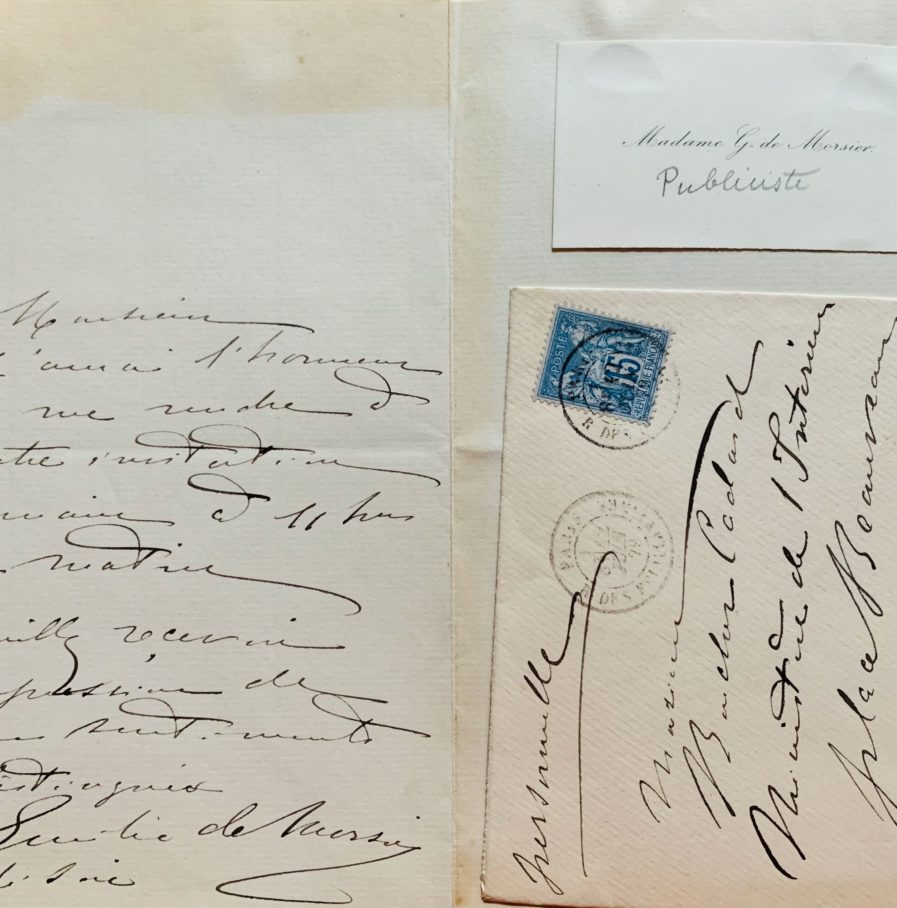 Monsieur
J'aurai l'honneur
me rendre à
tre invitation
à 11 hrs
matin
recevoir
pression de
sentiments
istingués
Emilie de Morsier
Madame G. de Morsier.
Publiciste
POSTE
15
R. DES
PARIS
78
personnelle
Monsieur
Ministère de l'Intérieur
place Beauvau